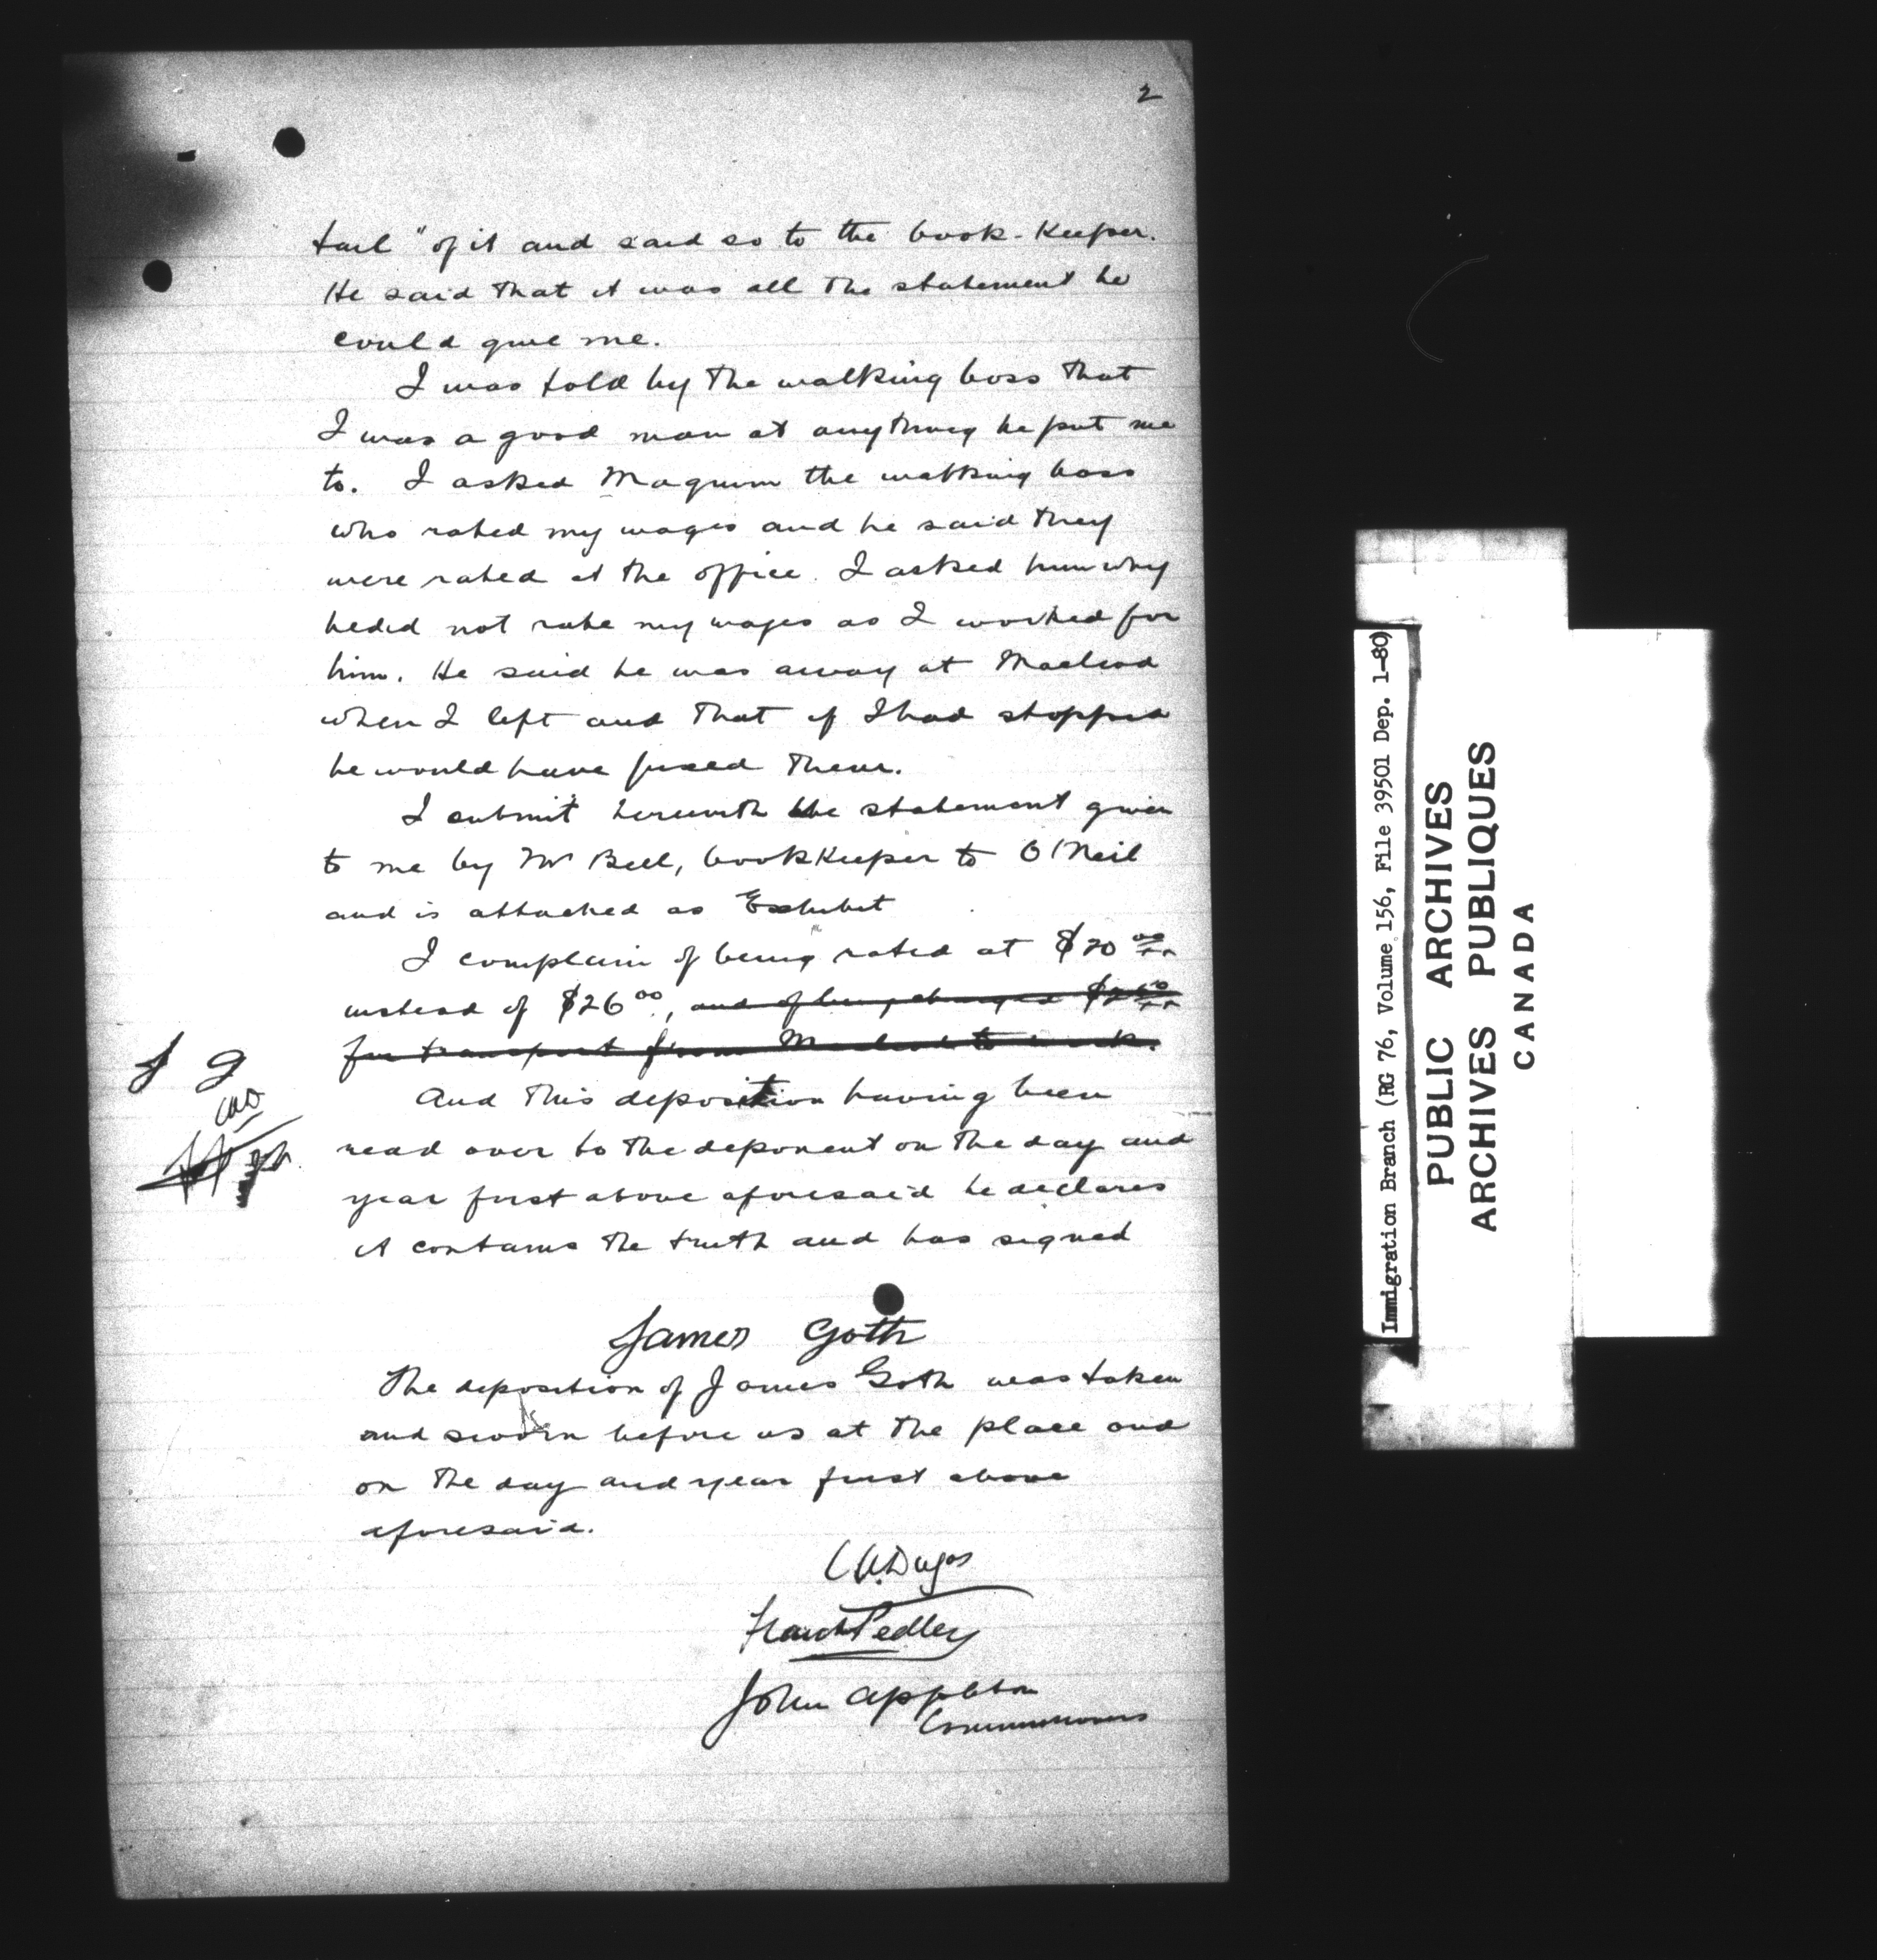 2
tail" of it and said so to the book-Keeper.
He said that it was all the statement he
could give me.
I was told by the walking boss that
I was a good man at anything he put me
to. I asked Maguin the walking boss
who rated my wages and he said they
were rated at the office. I asked him why
he did not rate my wages as I worked for
him. He said he was away at Macleod
when I left and that if I had stopped
he would have fixed them.
I submit herewith the statement given
to me by Mr Bell, bookKeeper to O'Neil
and is attached as Exhibit
I complain of being rated at $20 00
instead of $26 00, and of being charged
for transport from Macleod to work.
J G
CAD
And this deposition having been
read over to the deponent on the day and
year first above aforesaid he declares
it contains the truth and has signed
James Goth
The deposition of James Goth was taken
and sworn before us at the place and
on the day and year first above
aforesaid.
C A Dugas
Frank Pedley
John Appleton
Commissioners
Immigration Branch (RG 76, Volume 156, File 39501 Dep. 1-80)
PUBLIC ARCHIVES
ARCHIVES PUBLIQUES
CANADA